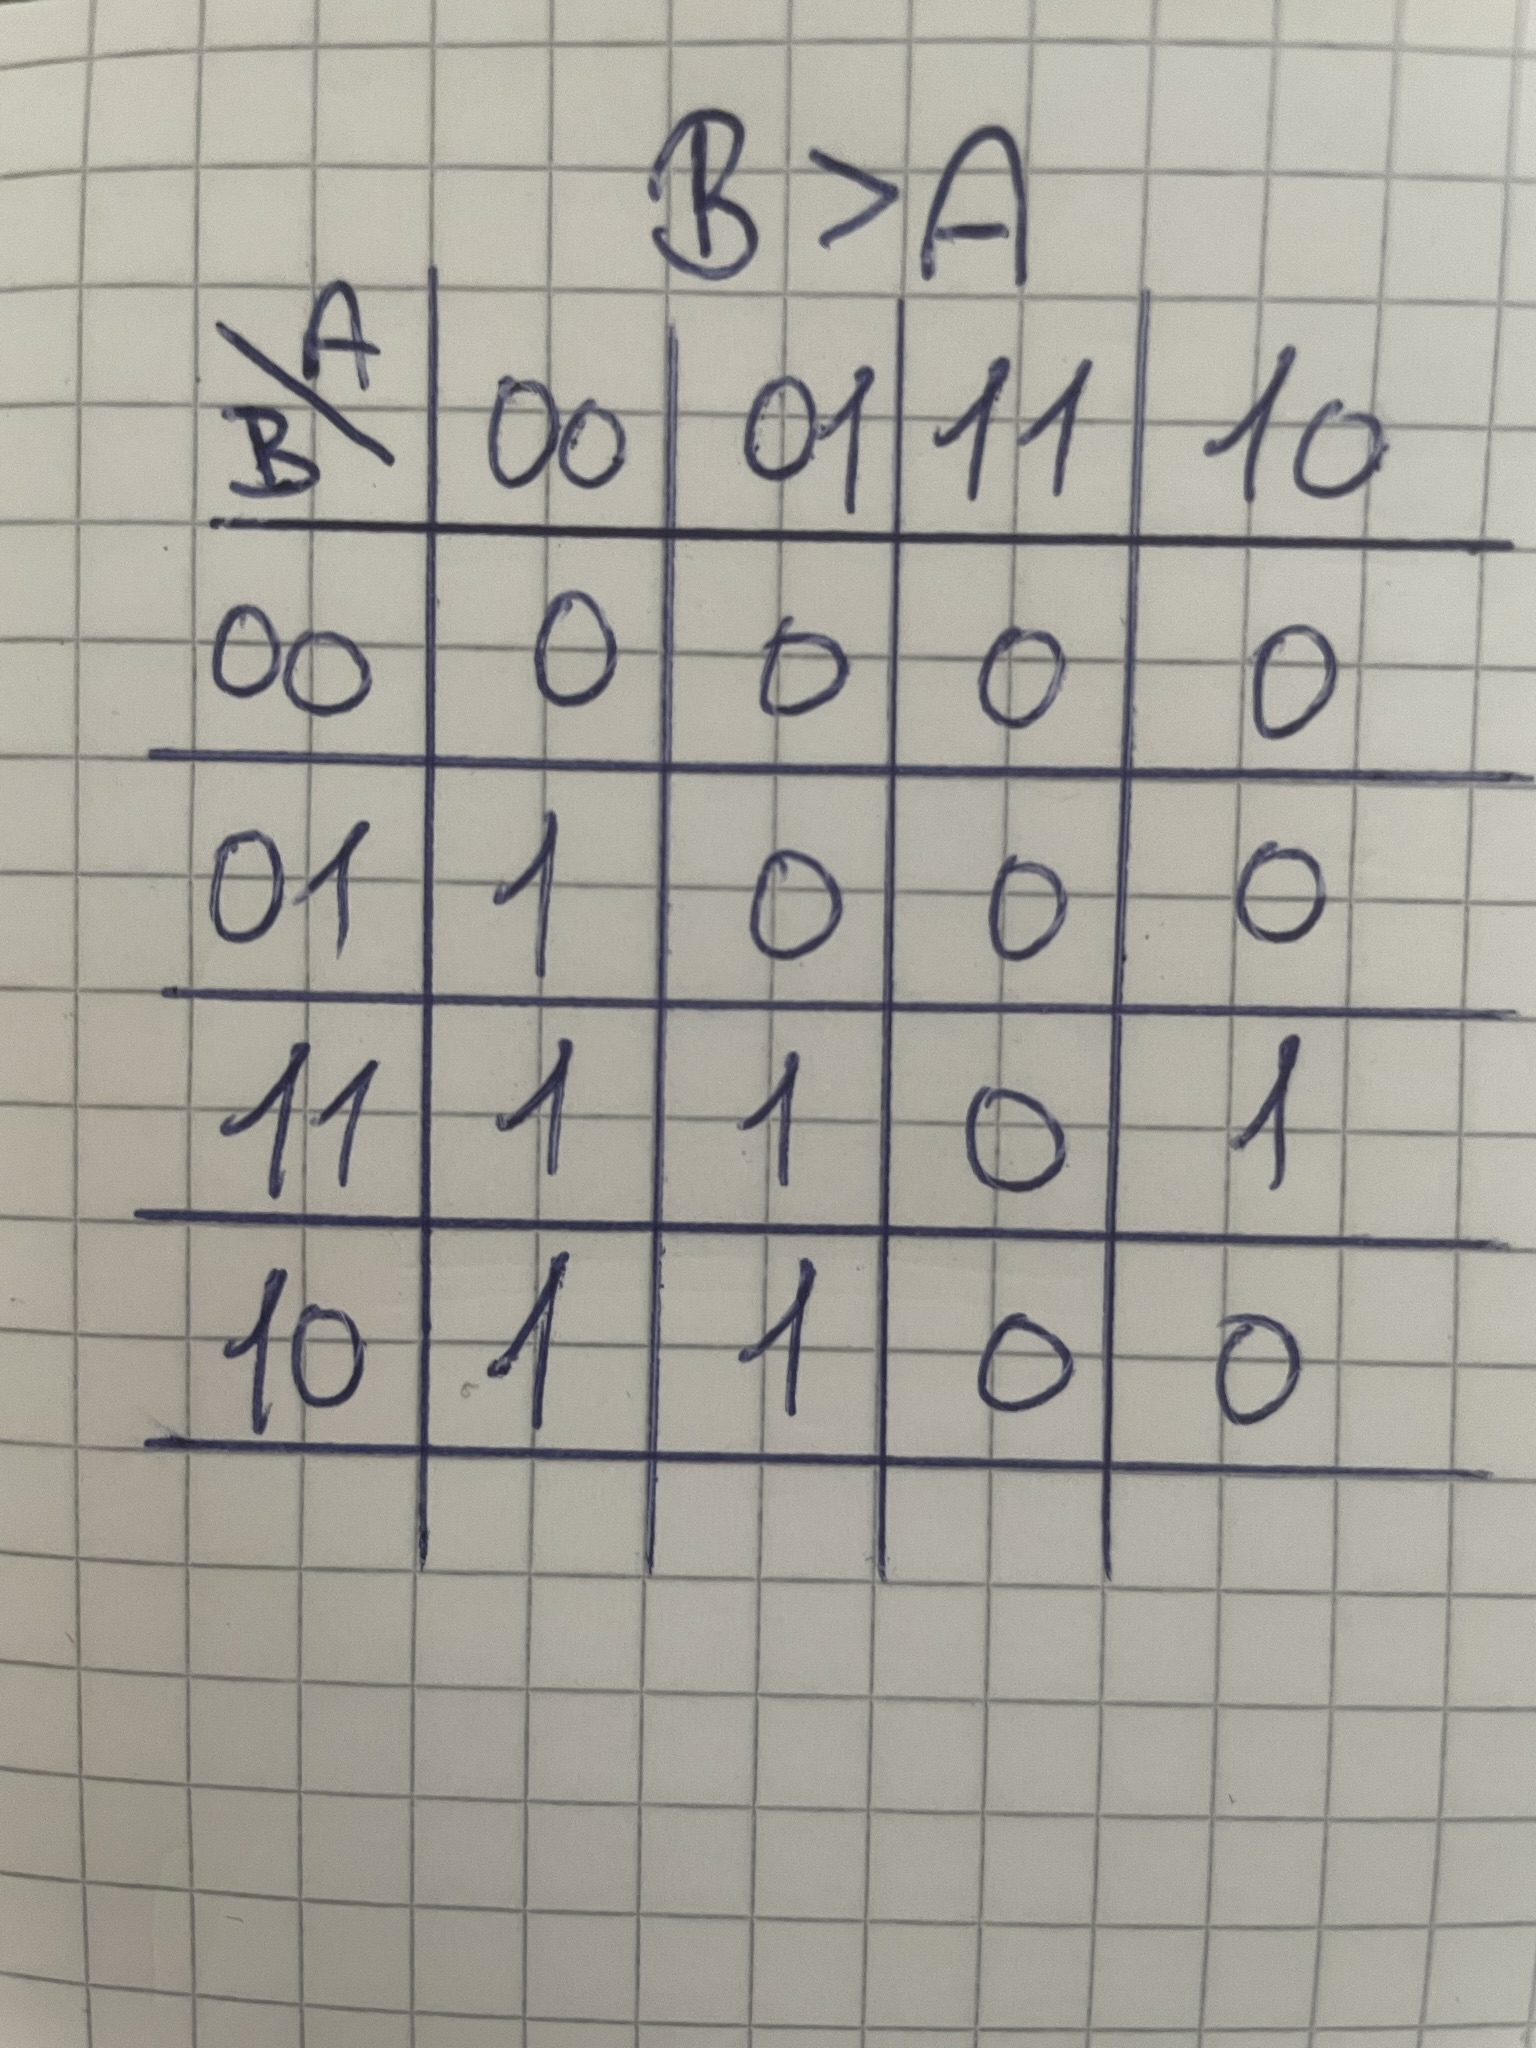 B > A
B \ A 00 01 11 10
00 0 0 0 0
01 1 0 0 0
11 1 1 0 1
10 1 1 0 0